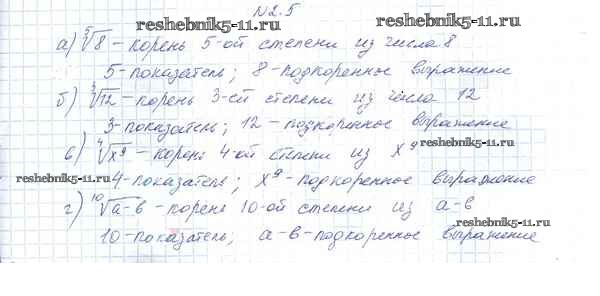 №2.5
reshebnik5-11.ru reshebnik5-11.ru
а) ⁵√8 – корень 5-ой степени из числа 8
5-показатель; 8-подкоренное выражение
б) ³√12 – корень 3-ей степени из числа 12
3-показатель; 12 – подкоренное выражение
в) ⁴√x⁹ – корень 4-ой степени из x⁹ reshebnik5-11.ru
reshebnik5-11.ru 4-показатель; x⁹-подкоренное выражение
г) ¹⁰√a-b - корень 10-ой степени из a-b
reshebnik5-11.ru
10-показатель; a-b-подкоренное выражение